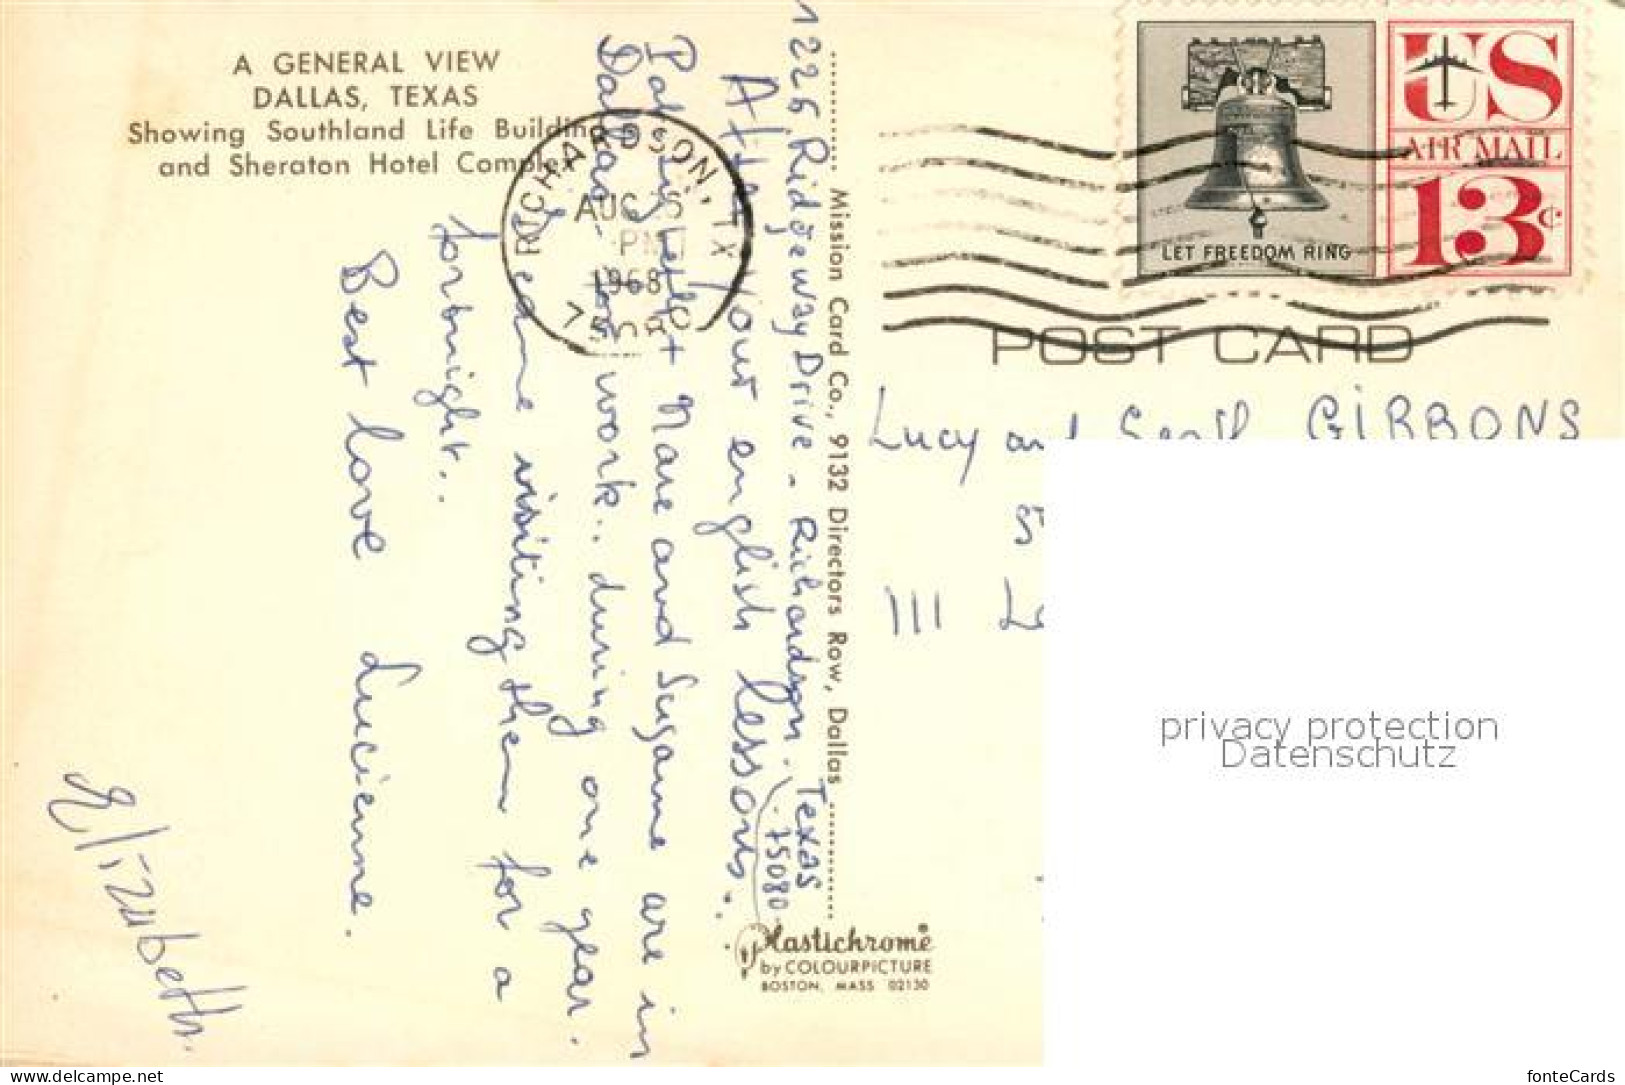 A GENERAL VIEW
DALLAS, TEXAS
Showing Southland Life Building
and Sheraton Hotel Complex
RICHARDSON, TX
AUG 5
PM
1968
US
AIR MAIL
13¢
LET FREEDOM RING
POST CARD
Mission Card Co., 9132 Directors Row, Dallas
1226 Ridgeway Drive - Richardson. Texas
75080
After your english lessons.
Marc and Suzanne are in
Dallas - for work.. during one year.
I came visiting them for a
fortnight..
Best love Lucienne.
Elizabeth.
Lucy and GIBBONS
111
Plastichrome®
by COLOURPICTURE
BOSTON, MASS 02130
privacy protection
Datenschutz
www.delcampe.net
fonteCards